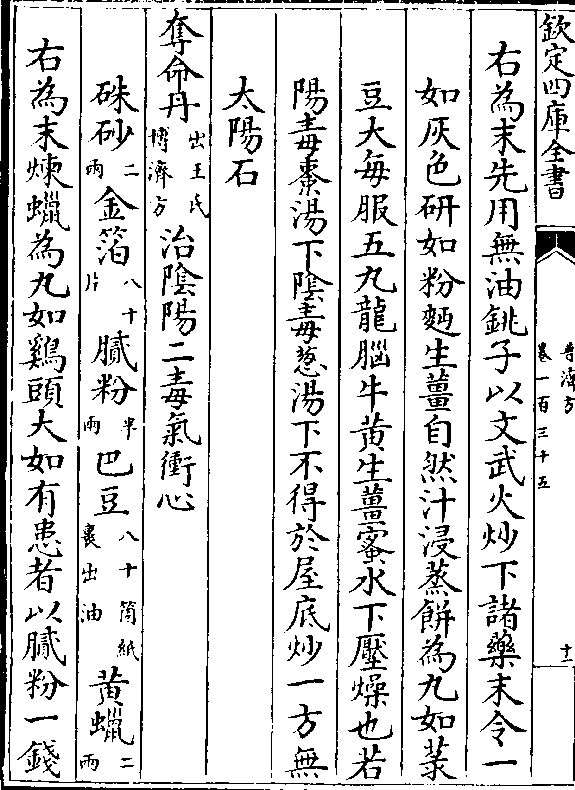 欽定四庫全書
普濟方
卷一百三十五
十一
右為末先用無油銚子以文武火炒下諸藥末令一
如灰色研如粉麫生薑自然汁浸蒸餅為丸如菉
豆大每服五丸龍腦牛黄生薑蜜水下壓燥也若
陽毒棗湯下陰毒葱湯下不得於屋底炒一方無
太陽石
奪命丹出王氏博濟方治陰陽二毒氣衝心
硃砂二兩金箔八十片膩粉半兩巴豆八十箇紙裹出油黄蠟二兩
右為末煉蠟為丸如鷄頭大如有患者以膩粉一錢